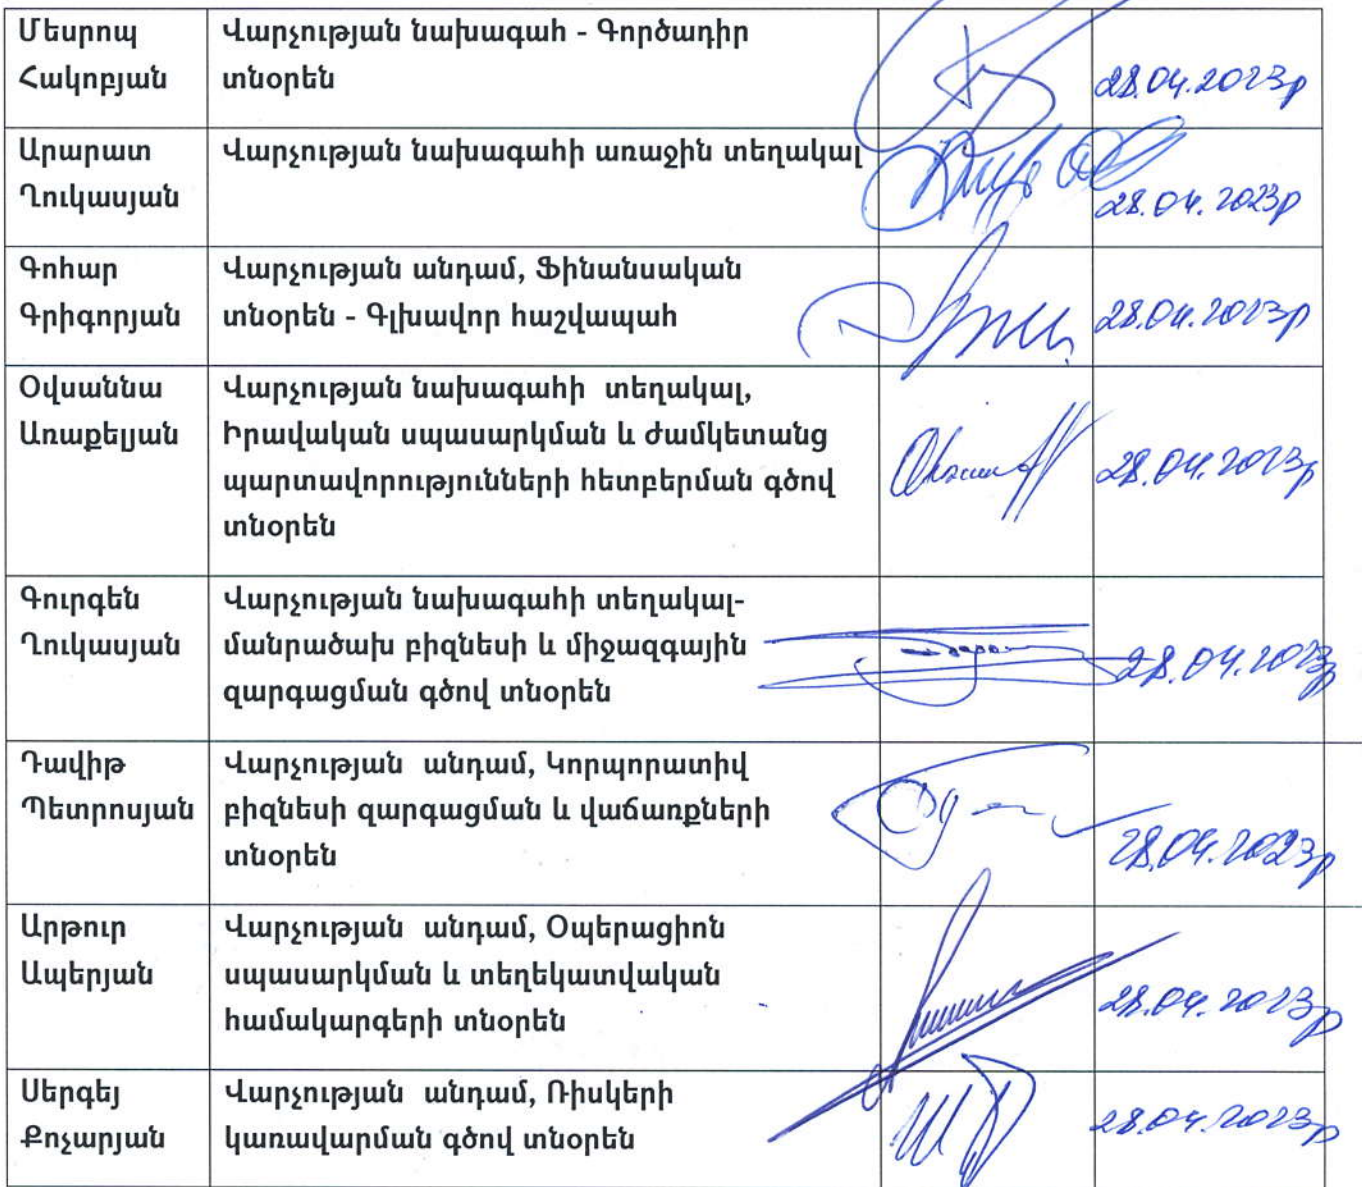 Մեսրոպ
Հակոբյան
Վարչության նախագահ - Գործադիր
տնօրեն
28.04.2023թ
Արարատ
Ղուկասյան
Վարչության նախագահի առաջին տեղակալ
28.04.2023թ
Գոհար
Գրիգորյան
Վարչության անդամ, Ֆինանսական
տնօրեն - Գլխավոր հաշվապահ
28.04.2023թ
Օվսաննա
Առաքելյան
Վարչության նախագահի տեղակալ,
Իրավական սպասարկման և ժամկետանց
պարտավորությունների հետբերման գծով
տնօրեն
28.04.2023թ
Գուրգեն
Ղուկասյան
Վարչության նախագահի տեղակալ-
մանրածախ բիզնեսի և միջազգային
զարգացման գծով տնօրեն
28.04.2023թ
Դավիթ
Պետրոսյան
Վարչության անդամ, Կորպորատիվ
բիզնեսի զարգացման և վաճառքների
տնօրեն
28.04.2023թ
Արթուր
Ապերյան
Վարչության անդամ, Օպերացիոն
սպասարկման և տեղեկատվական
համակարգերի տնօրեն
28.04.2023թ
Սերգեյ
Քոչարյան
Վարչության անդամ, Ռիսկերի
կառավարման գծով տնօրեն
28.04.2023թ